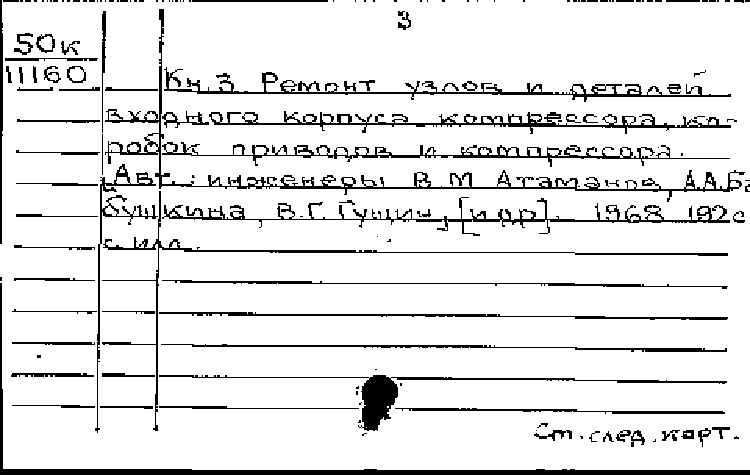 3
50к
11160
Кн.3 Ремонт узлов и деталей
входного корпуса компрессора, ко-
робок приводов и компрессора.
Авт.: инженеры В.М Атаманов, А.А.Ба
бушкина, В.Г. Гущин, [и др]. 1968 192с
с илл.
Ст. след. карт.